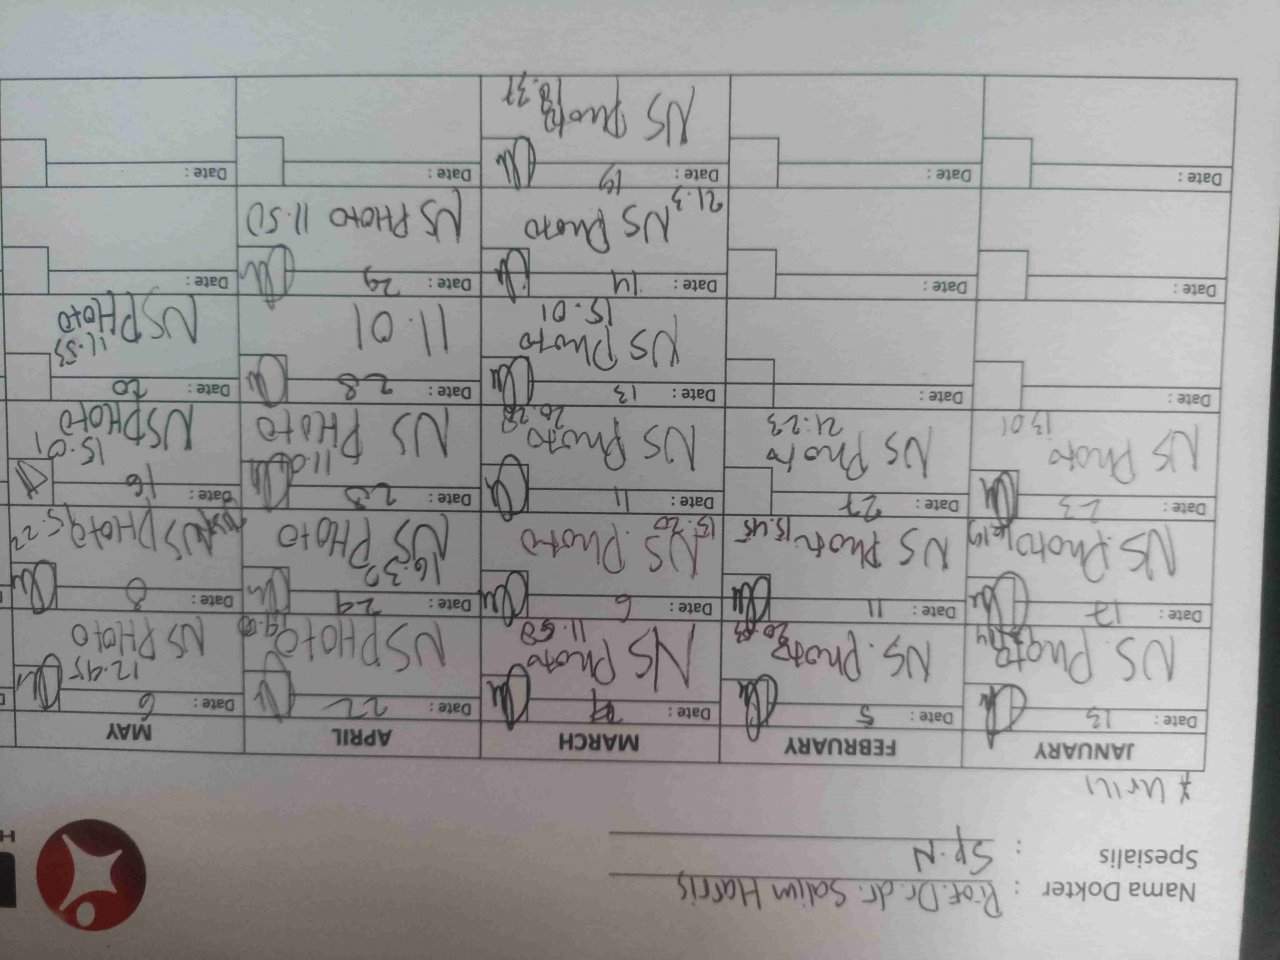 Nama Dokter : Prof. Dr. dr. Salim Harris
Spesialis : Sp.N
* Urili
JANUARY FEBRUARY MARCH APRIL MAY
Date : 13 Date : 5 Date : Date : 22 Date : 6
NS. Photo NS. Photo 20.03 NS Photo 11.58 NS PHOTO NS PHOTO 12.45
Date : 17 Date : 11 Date : 6 Date : 24 Date : 8
NS. Photo NS Photo 15.45 NS. Photo 13.20 NS PHOTO 16.37 NS PHOTO 15.22
Date : 23 Date : 27 Date : 11 Date : 28 Date : 16
NS Photo 13.01 NS Photo 21.23 NS Photo 20.28 NS PHOTO NS PHOTO 15.01
Date : Date : Date : 13 Date : 28 Date : 20
NS Photo 15.01 11.01 NS PHOTO 11.53
Date : Date : Date : 14 Date : 29 Date :
NS Photo 21.3 NS PHOTO 11.50
Date : Date : Date : 19 Date : Date :
NS Photo 18.37